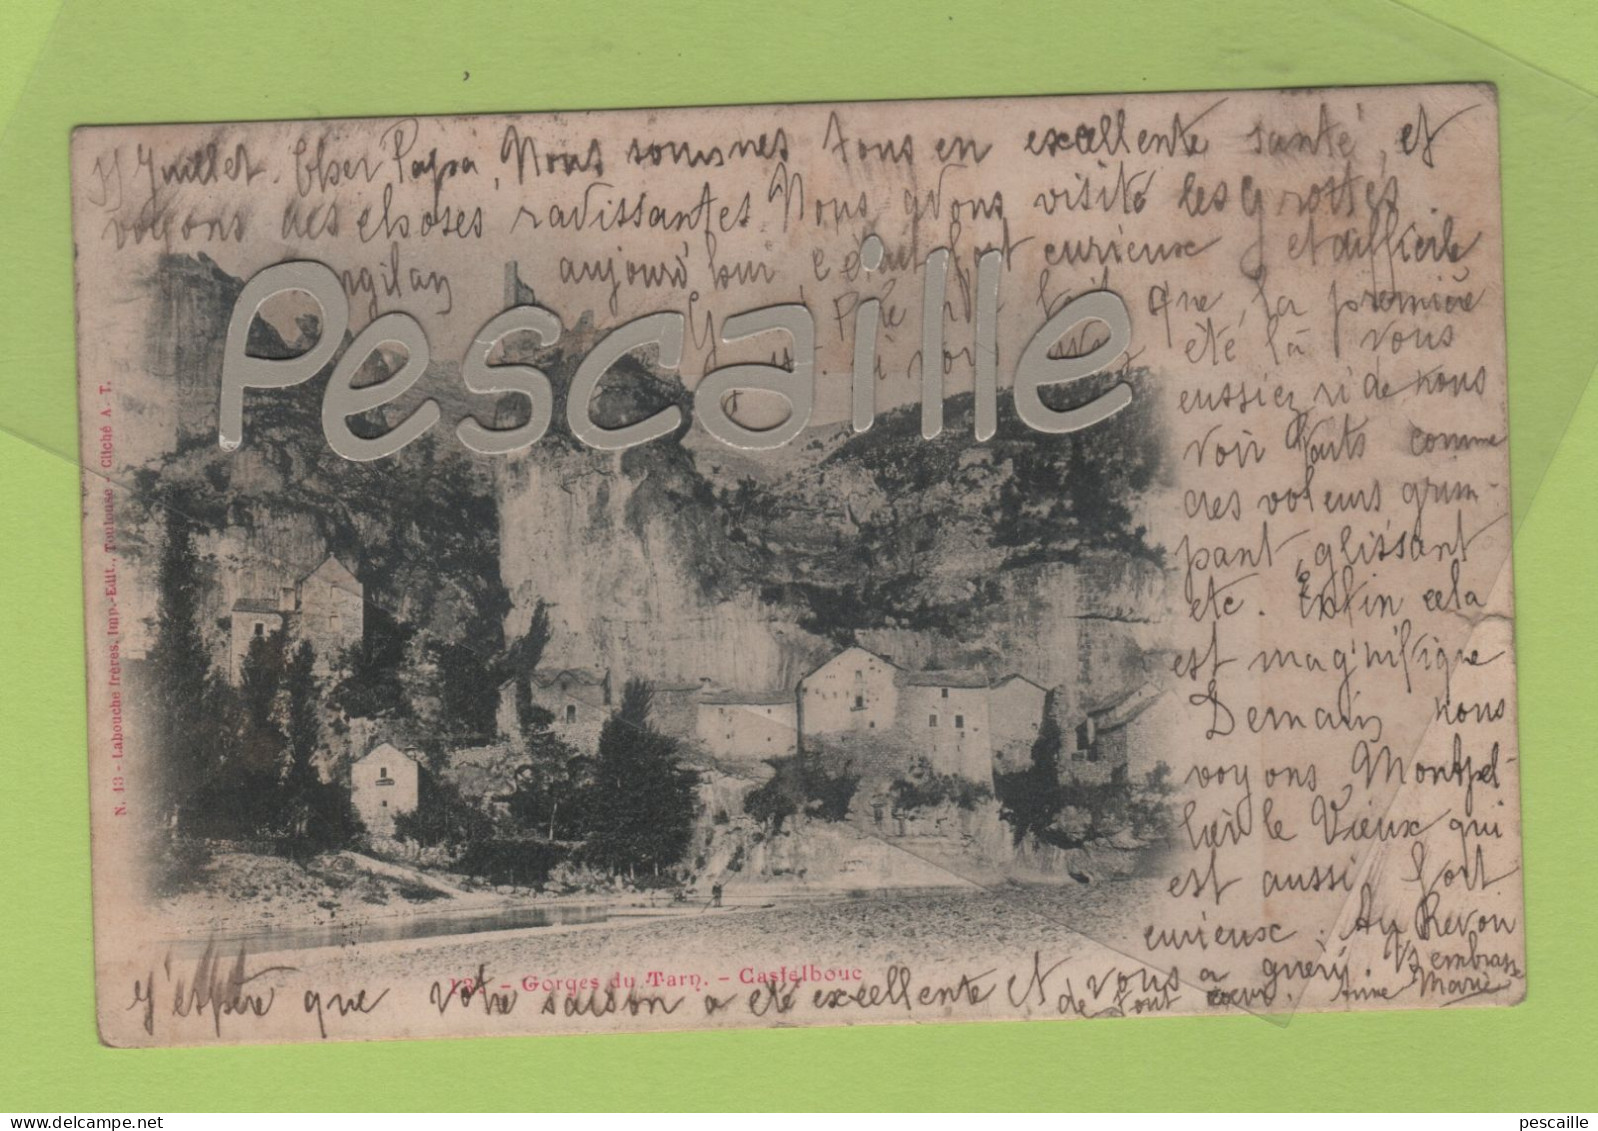 Juillet. Cher Papa, Nous sommes tous en excellente santé, et
voyons des choses ravissantes. Nous avons visité les Grottes
aujourd'hui, c'était fort curieux et difficile
que, la première
été là vous
eussiez ri de nous
voir tous comme
des voleurs grim-
pant, glissant
etc. Enfin cela
est magnifique
Demain nous
voyons Montpel-
lier le Vieux qui
est aussi fort
curieux. Au Revoir
J'espère que votre saison a été excellente et vous a guéri. Vs embrasse
de tout coeur. Anne Marie
Pescaille
- Gorges du Tarn. - Castelbouc
N. 13 - Labouche frères, Imp.-Edit., Toulouse - Cliché A. T.
pescaille